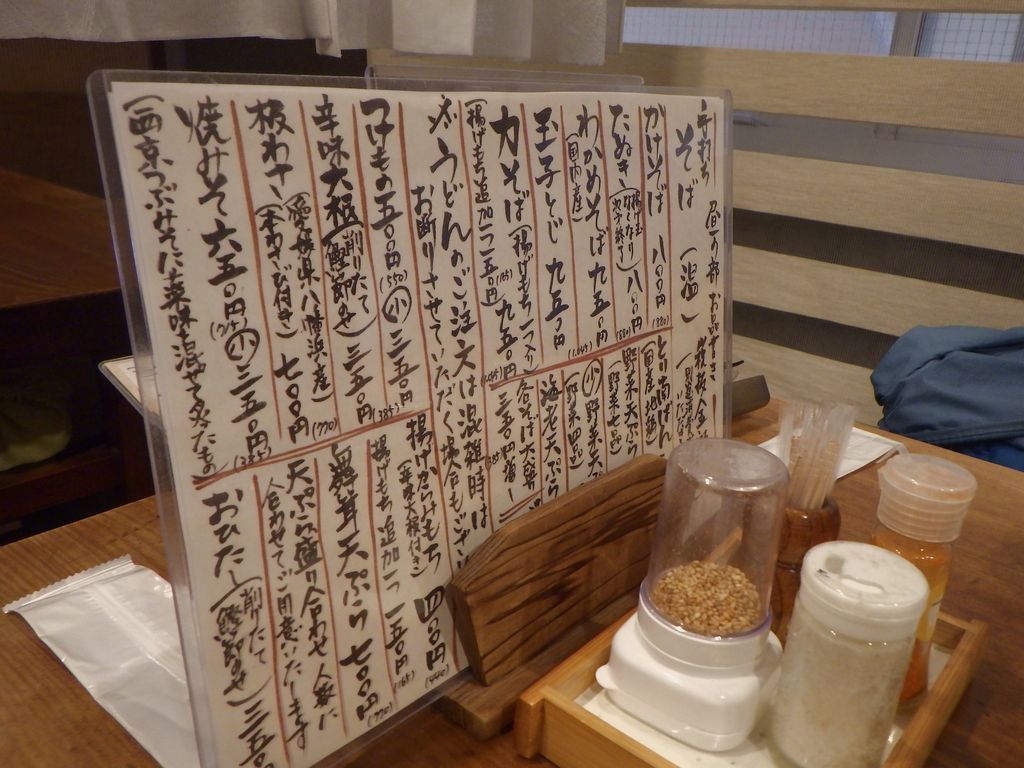 手打ち 昼の部 お品
そば （温）
かけそば 八〇〇円 (880)
たぬき（揚げ玉 八〇〇円 (880)
わかめそば 九五〇円 (1,045)
（国内産）
玉子とじ 九五〇円 (1,045)
力そば（揚げもち一つ入 九五〇円
（揚げもち追加一つ一五〇円 (165)
※うどんのご注文は混雑時は
お断りさせていただく場合も
つけもの 五〇〇円 (550) 小 三五〇円 (385)
辛味大根（削りたて 鰹節のせ） 三五〇円 (385)
（愛媛県八幡浜産）
板わさ（本わさび付き） 七〇〇円 (770)
焼みそ 六五〇円 (715) 小 三五〇円 (385)
（西京つぶみそに薬味混ぜて
野菜天ぷら
野菜七
小 野菜天
野菜四
海老天ぷら
各そば大盛
三五〇円増
揚げからみもち 四〇〇円 (440)
（辛味大根付き）
揚げもち追加一つ 一五〇円 (165)
舞茸天ぷら 七〇〇円 (770)
天ぷら盛り合わせ 人数に
合わせてご用意いたします
おひたし（削りたて 鰹節のせ） 三五〇